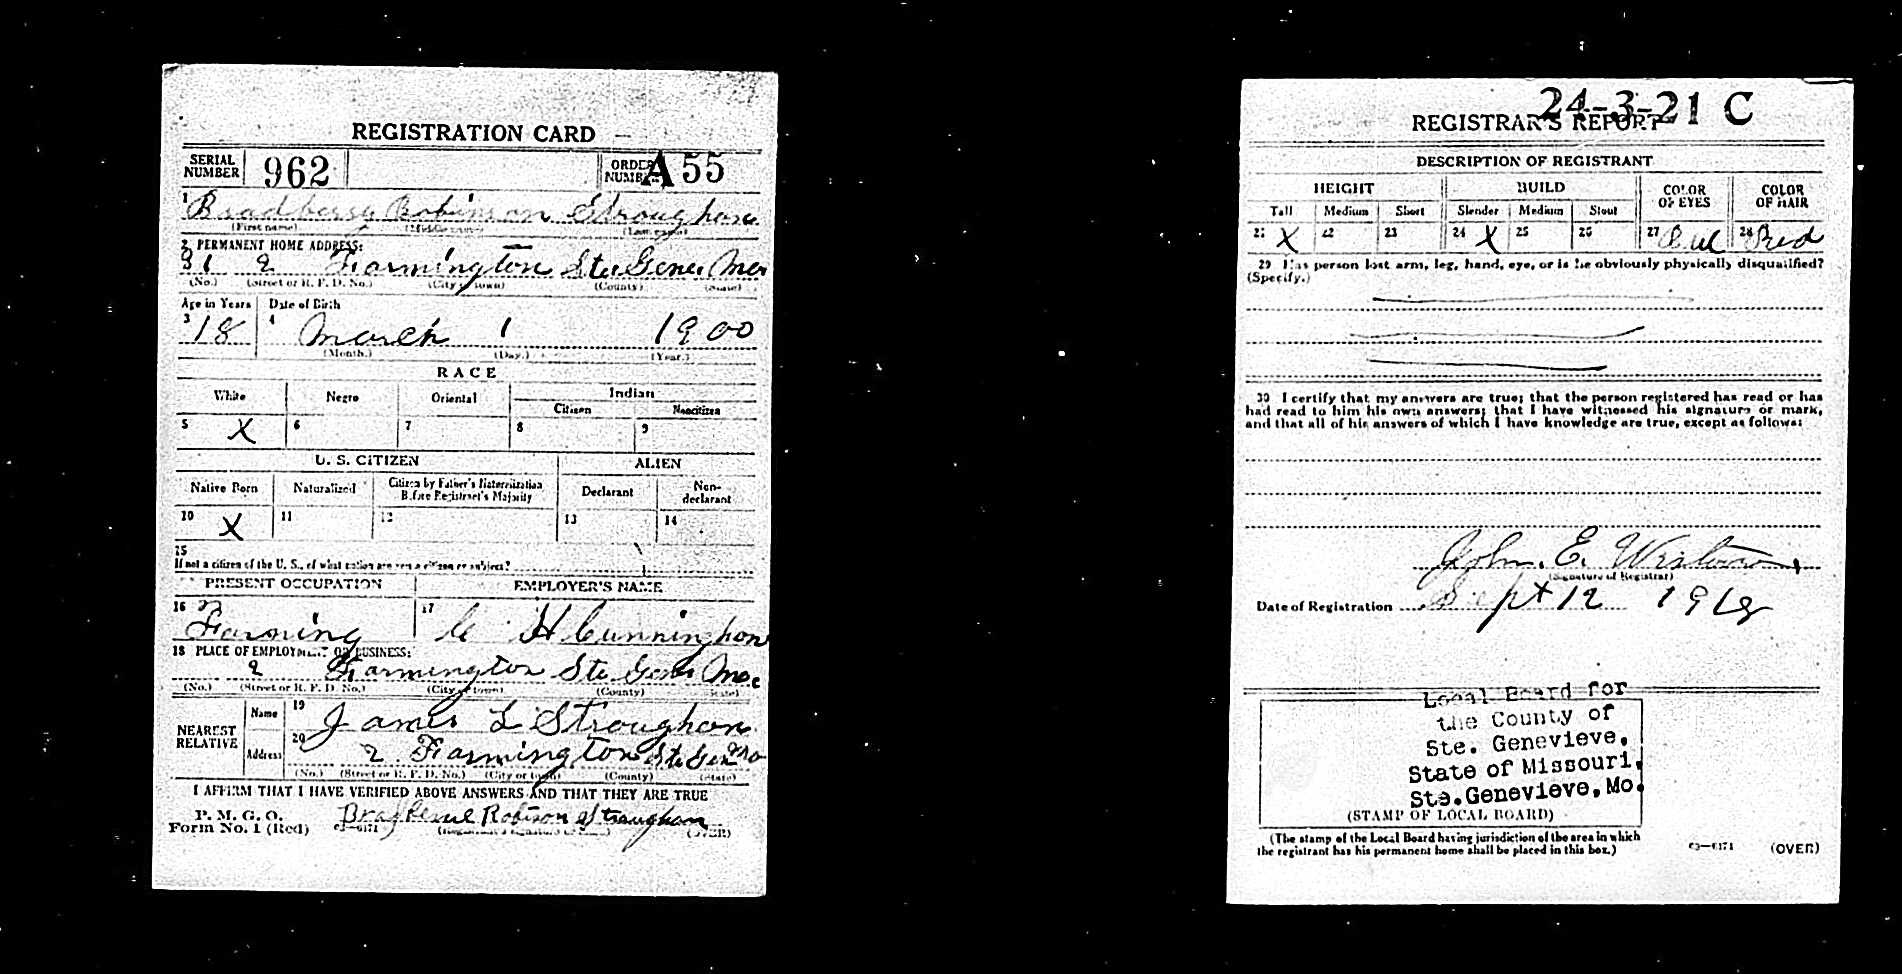 REGISTRATION CARD
SERIAL NUMBER 962 ORDER NUMBER A 55
1 Bradberry Robinson Stroughan
(First name) (Middle name) (Last name)
2 PERMANENT HOME ADDRESS:
2 Farmington Ste. Gene. Mo
(No.) (Street or R. F. D. No.) (City or town) (County) (State)
Age in Years Date of Birth
3 18 4 March 1 1900
(Month.) (Day.) (Year.)
RACE
White Negro Oriental Indian
Citizen Noncitizen
5 X 6 7 8 9
U. S. CITIZEN ALIEN
Native Born Naturalized Citizen by Father's Naturalization Before Registrant's Majority Declarant Non-declarant
10 X 11 12 13 14
15
If not a citizen of the U. S., of what nation are you a citizen or subject?
PRESENT OCCUPATION EMPLOYER'S NAME
16 Farming 17 H Cunningham
18 PLACE OF EMPLOYMENT OR BUSINESS:
2 Farmington Ste. Gene Mo.
(No.) (Street or R. F. D. No.) (City or town) (County) (State)
NEAREST RELATIVE
Name 19 James L Stroughan
Address 20 2 Farmington Ste Gen Mo
(No.) (Street or R. F. D. No.) (City or town) (County) (State)
I AFFIRM THAT I HAVE VERIFIED ABOVE ANSWERS AND THAT THEY ARE TRUE
P. M. G. O.
Form No. 1 (Red) 03—6171 Robison Straughan
(Registrant's signature or mark) (OVER)
24-3-21 C
REGISTRAR'S REPORT
DESCRIPTION OF REGISTRANT
HEIGHT BUILD COLOR OF EYES COLOR OF HAIR
Tall Medium Short Slender Medium Stout
21 X 22 23 24 X 25 26 27 28 Red
29 Has person lost arm, leg, hand, eye, or is he obviously physically disqualified?
(Specify.)
30 I certify that my answers are true; that the person registered has read or has
had read to him his own answers; that I have witnessed his signature or mark,
and that all of his answers of which I have knowledge are true, except as follows:
John. E.
(Signature of Registrar)
Date of Registration Sept 12 1918
Local Board for
the County of
Ste. Genevieve,
State of Missouri,
Ste. Genevieve, Mo.
(STAMP OF LOCAL BOARD)
(The stamp of the Local Board having jurisdiction of the area in which
the registrant has his permanent home shall be placed in this box.)
03—6171 (OVER)